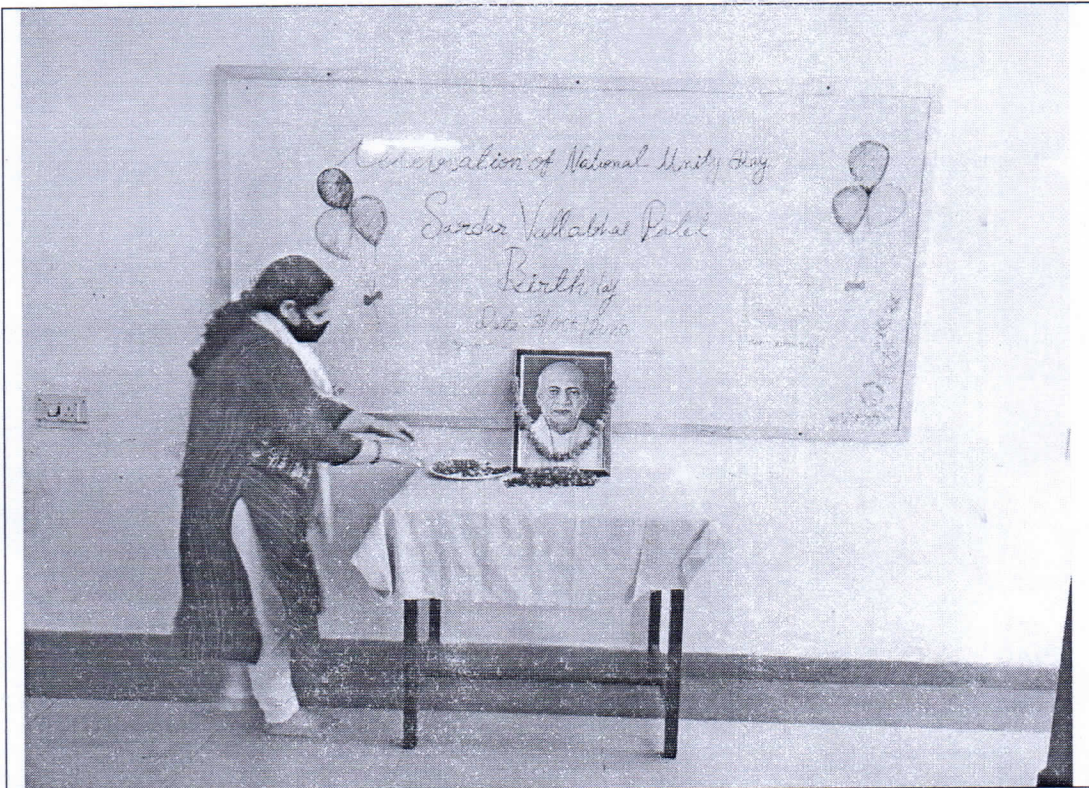 Celebration of National Unity Day
Sardar Vallabhai Patel
Birth day
Date 31/Oct/2020